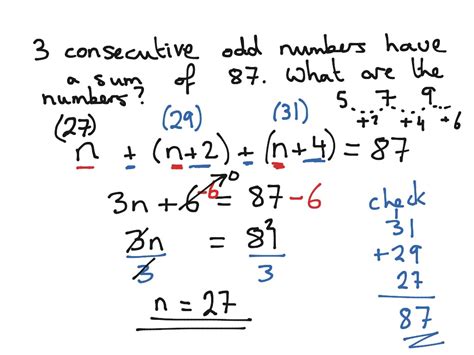 3 consecutive odd numbers have
a sum of 87. What are the
numbers?
5 ... 7 ... 9 ...
+2 +4 +6
(27) (29) (31)
n + (n+2) + (n+4) = 87
3n + 6 -6 = 87 - 6
0
3n = 81
3 3
n = 27
check
31
+29
27
87